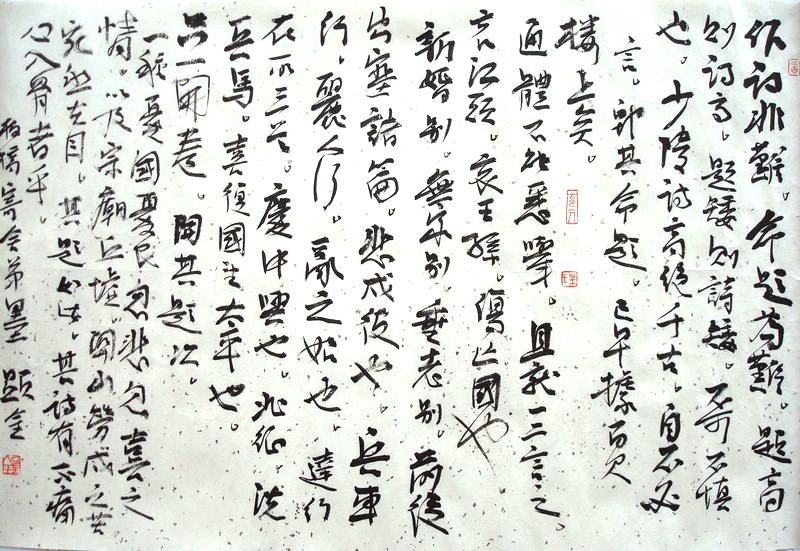 作詩非難。命題為難。題高
則詩高。題矮則詩矮。不可不慎
也。少陵詩高絕千古。自不必
言。即其命題。已早據百尺
樓上矣。
通體不能悉舉。且就一二言之。
哀江頭。哀王孫。傷亡國也
新婚別。無家別。垂老別。前後
出塞諸篇。悲戍役也。兵車
行。麗人行。亂之始也。達行
在所三首。慶中興也。北征。洗
兵馬。喜復國望太平也。
只一開卷。閱其題次。
一種憂國憂民忽悲忽喜之
情。以及宗廟丘墟。關山勞戍之苦
宛然在目。其題如此。其詩有不痛
心入骨者乎。
板橋寄舍弟墨